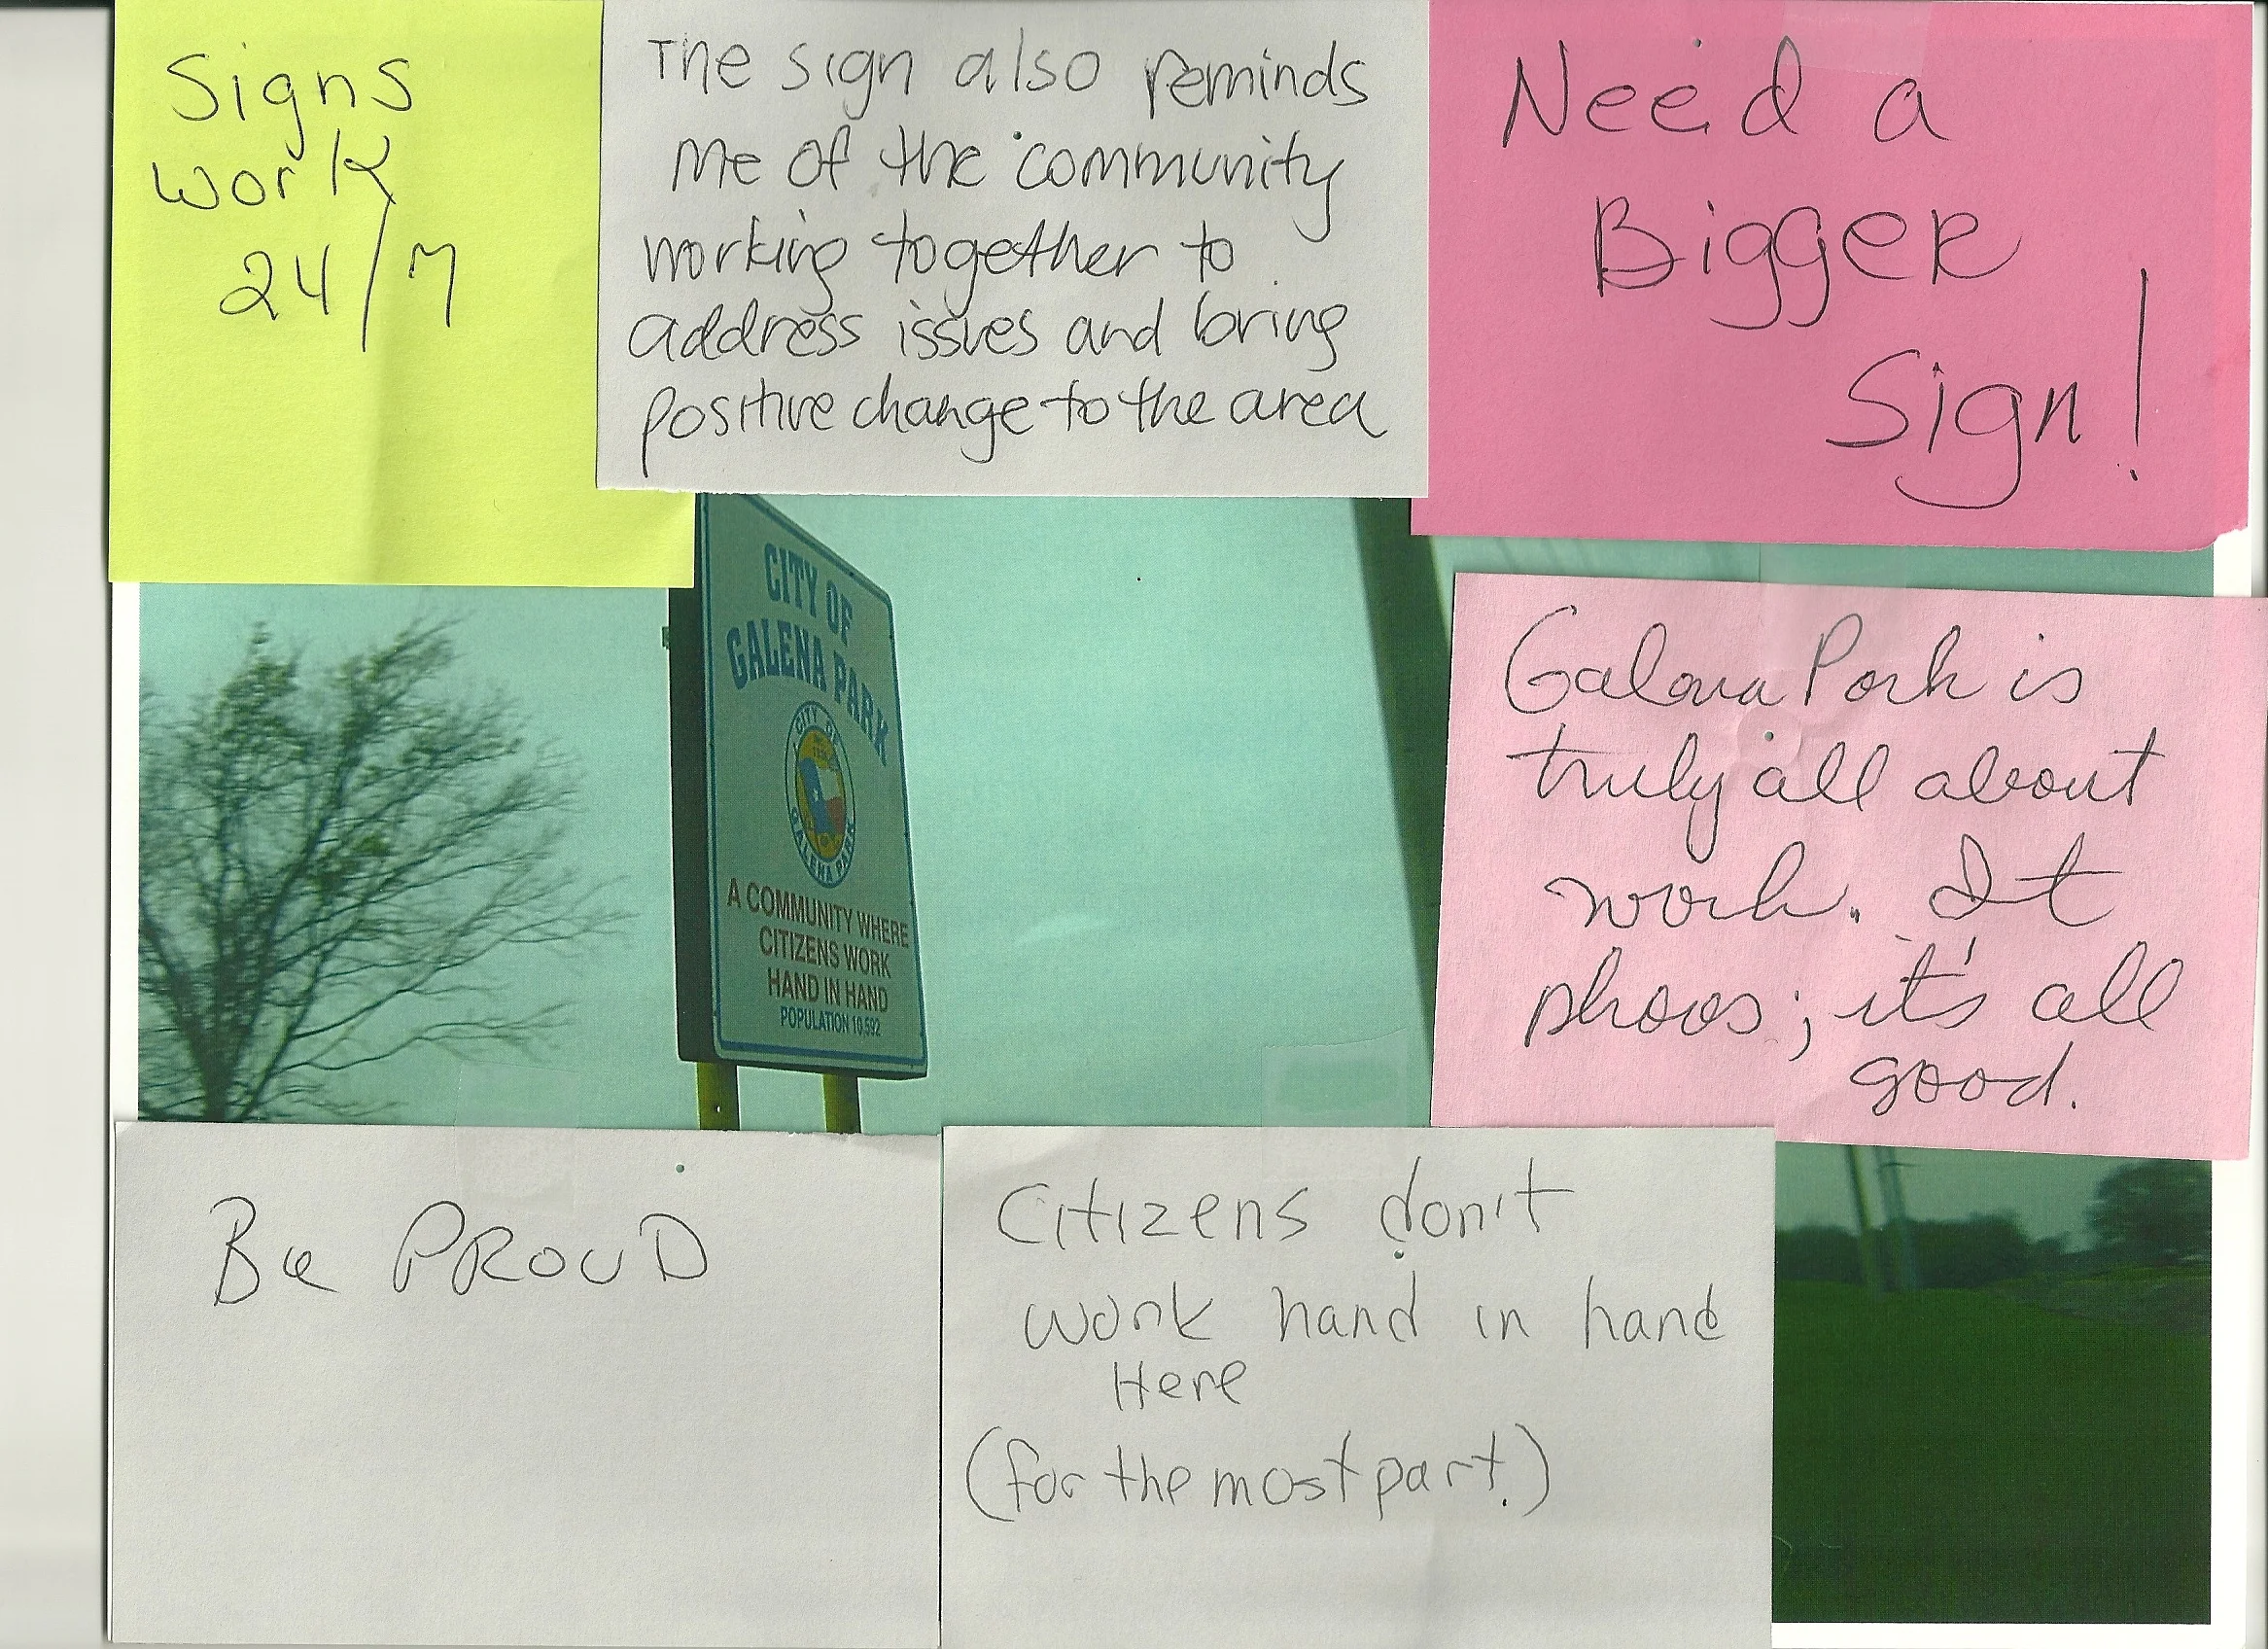 Signs
work
24/7
The sign also reminds
me of the community
working together to
address issues and bring
positive change to the area
Need a
Bigger
Sign!
CITY OF
GALENA PARK
CITY OF
GALENA PARK
A COMMUNITY WHERE
CITIZENS WORK
HAND IN HAND
POPULATION 10,592
Galena Park is
truly all about
work. It
shows; it's all
good.
Be PROUD
Citizens don't
work hand in hand
Here
(for the most part.)